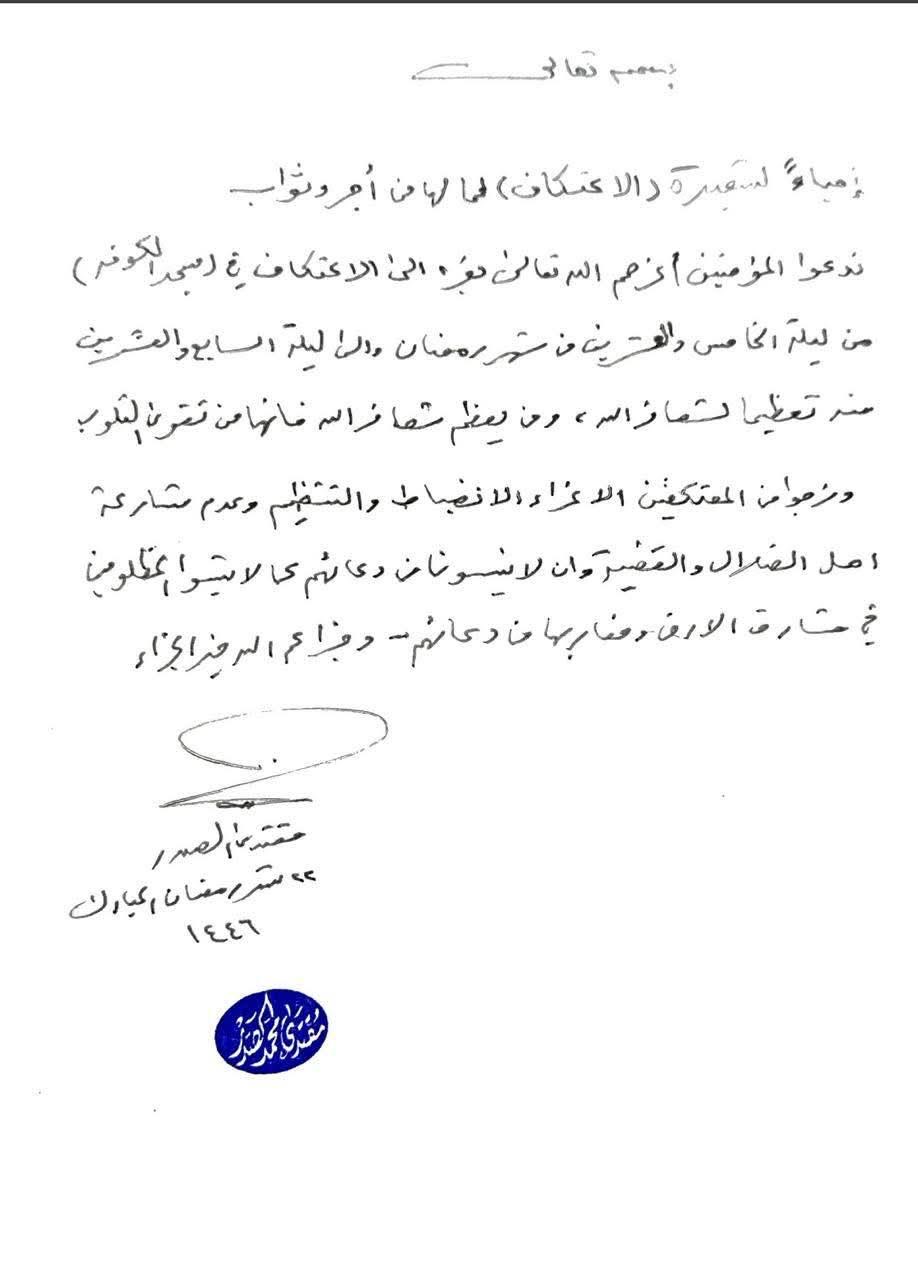 بسمه تعالى
إحياءً لشعيرة (الاعتكاف) لما لها من أجر وثواب
ندعوا المؤمنين أعزهم الله تعالى بعزه الى الاعتكاف في (مسجد الكوفه)
من ليلة الخامس والعشرين من شهر رمضان والى ليلة السابع والعشرين
منه تعظيما لشعائر الله، ومن يعظم شعائر الله فانها من تقوى القلوب
ونرجوا من المعتكفين الاعزاء الانضباط والتنظيم وعدم
اهل الضلال وان لا ينسونا من دعائهم كما لا ينسوا المظلومين
في مشارق الارض ومغاربها من دعائهم - وجزاهم الله خير الجزاء
مقتدى الصدر
٢٢ شهر رمضان المبارك
١٤٤٦
مقتدى محمد الصدر